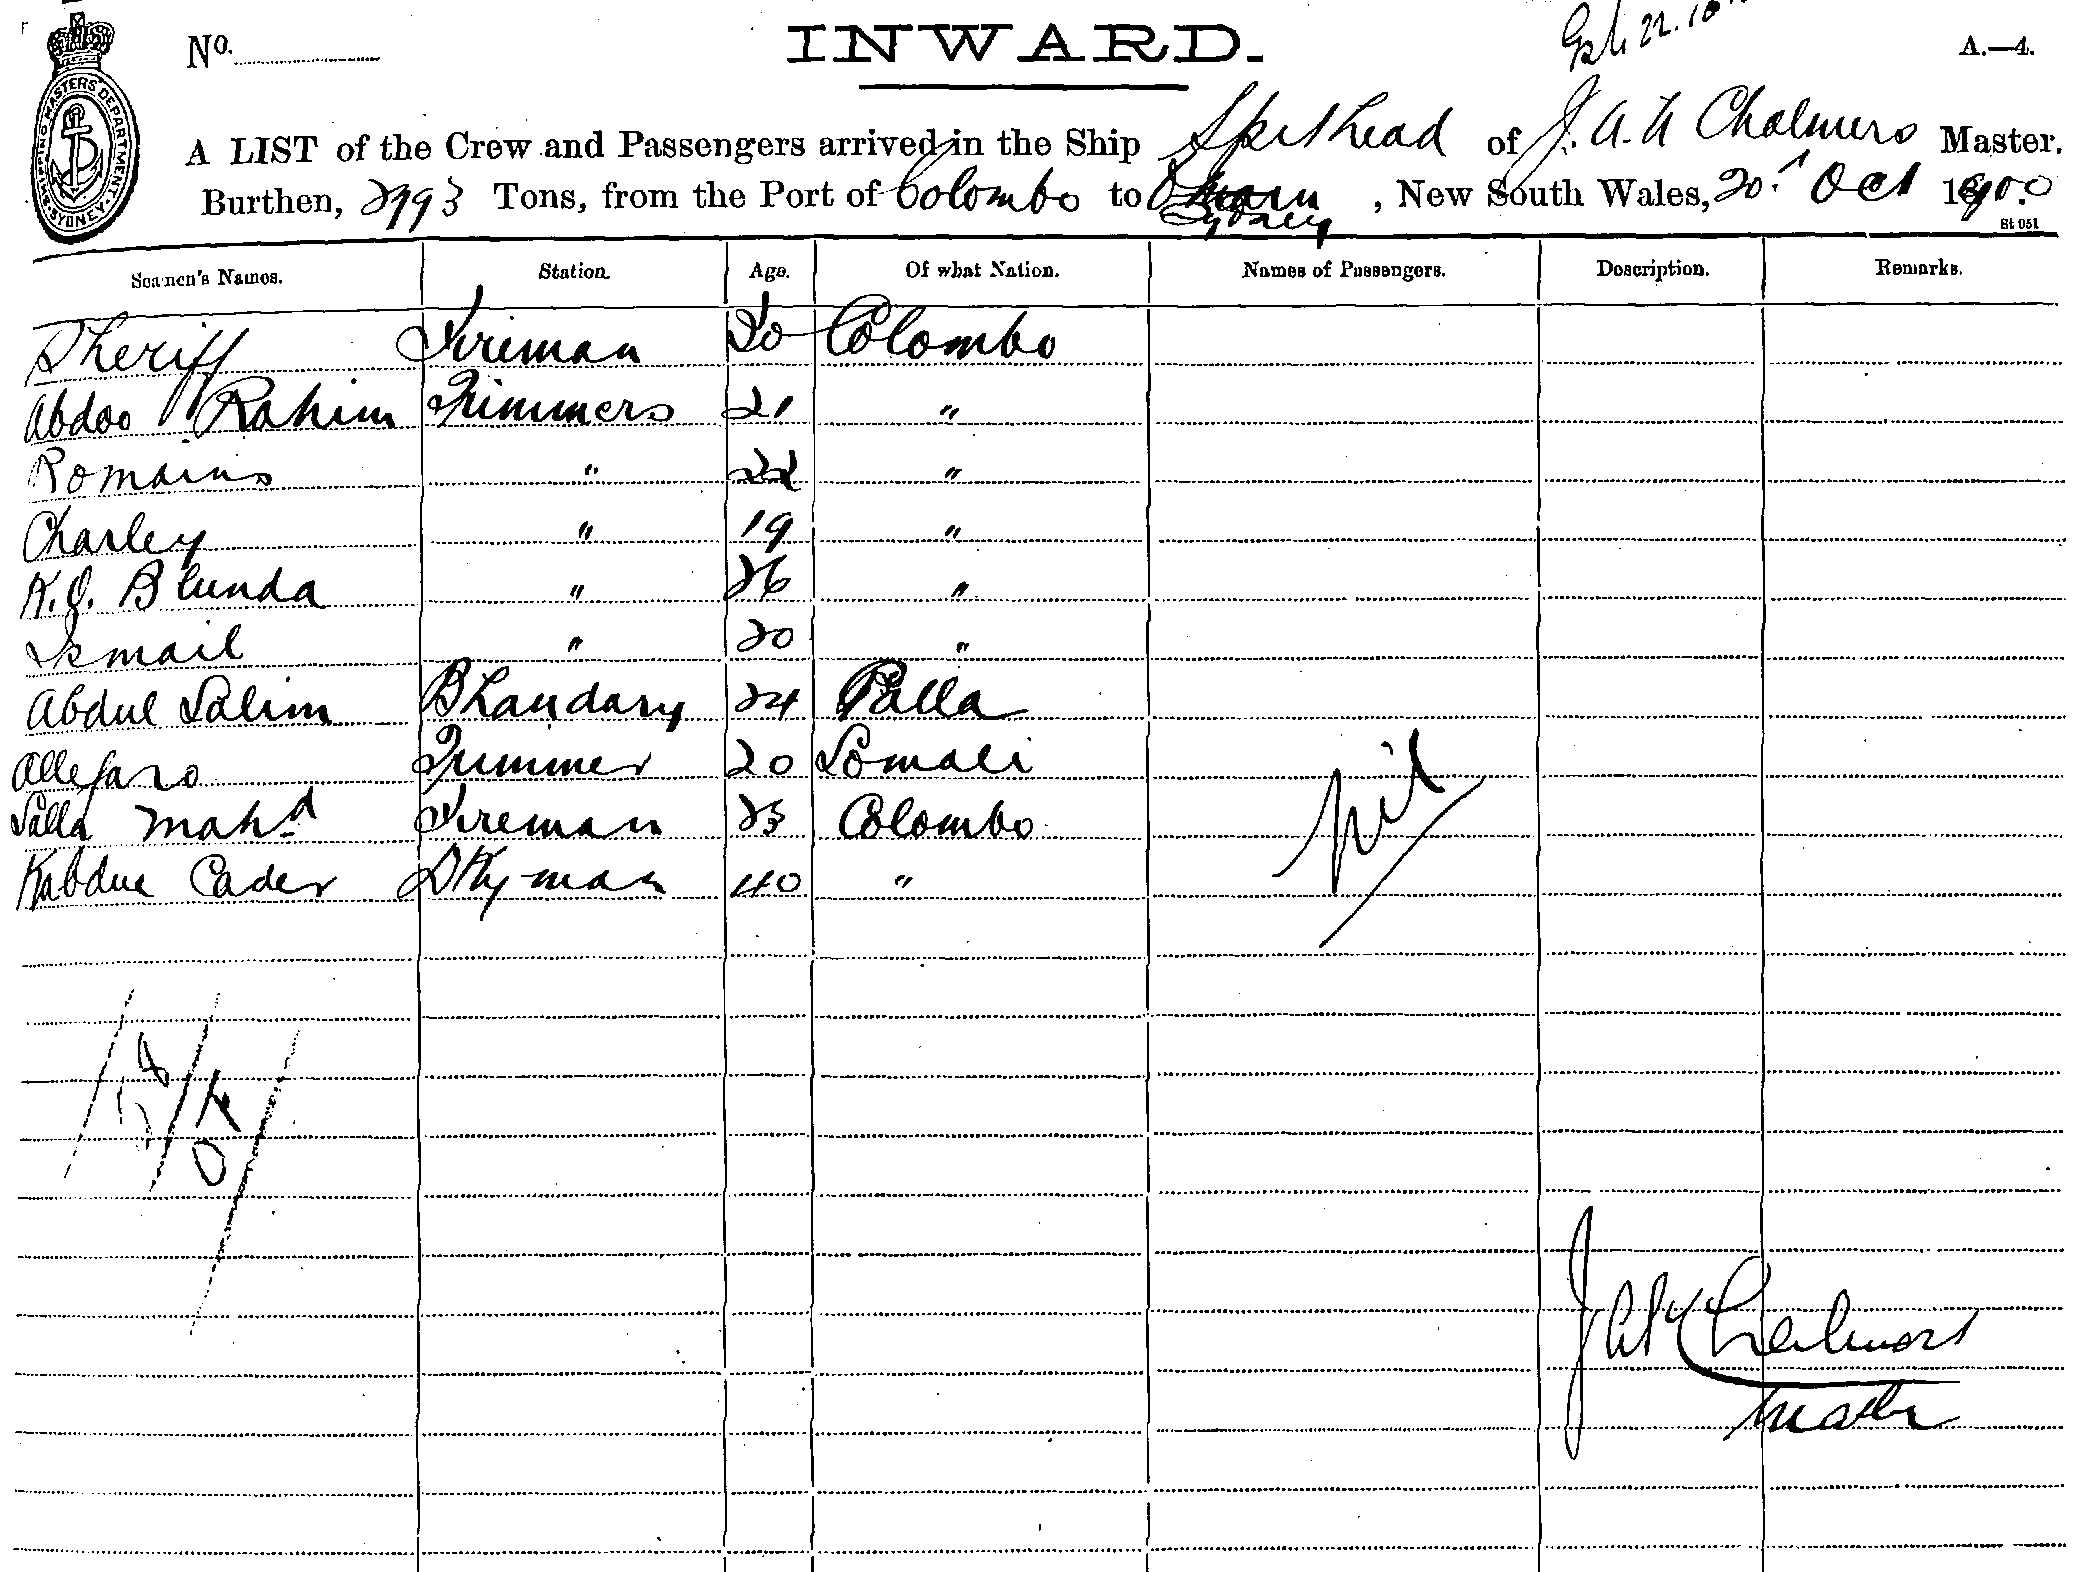 No.
INWARD.
A.—4.
SHIPPING MASTERS DEPARTMENT SYDNEY
A LIST of the Crew and Passengers arrived in the Ship Spithead of J. A. N Chalmers Master.
Burthen, 2993 Tons, from the Port of Colombo to Sydney, New South Wales, 20th Oct 1900
St 051
Seamen's Names. Station. Age. Of what Nation. Names of Passengers. Description. Remarks.
Sheriff Fireman Colombo
Abdoo Rahim Trimmers 21 "
Romains " 22 "
Charley " 19 "
K.O. Blunda " 26 "
Ismail " 20 "
Abdul Salim Bhandary 24 Palla
Allefaro Trimmer 20 Somali
Salla Mahd Fireman 23 Colombo
Kabdue Cader Dkyman 40 "
Nil
Chalmers
Master